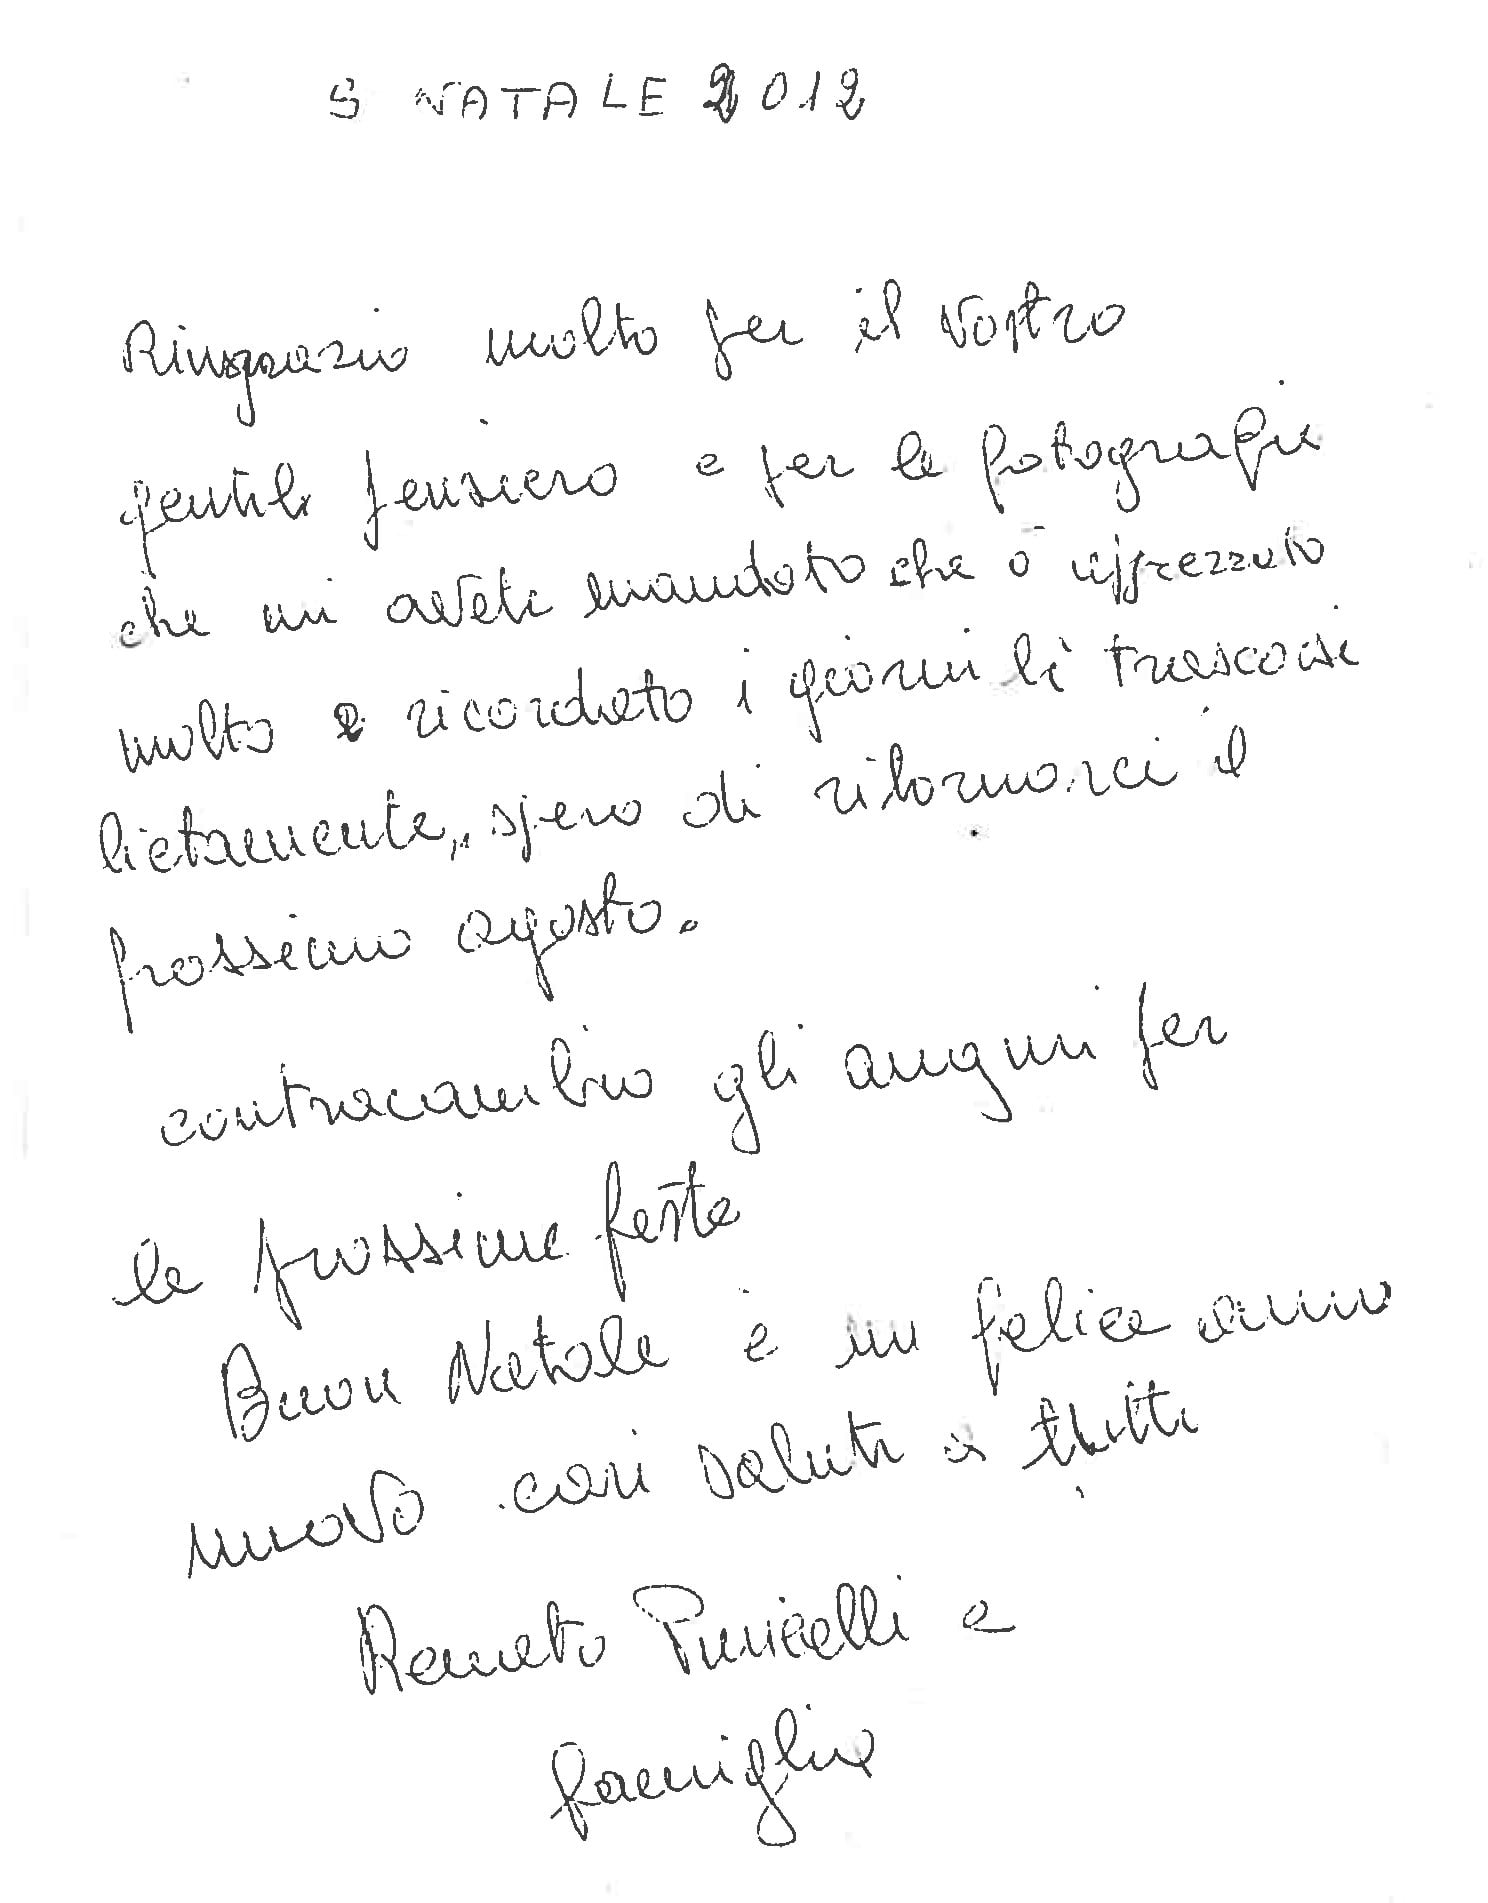 S NATALE 2012
Ringrazio molto per il vostro
gentile pensiero e per le fotografie
che mi avete mandato che ò apprezzato
molto e ricordato i giorni lì trascorsi
lietamente, spero di ritornarci il
prossimo agosto.
contracambio gli auguri per
le prossime feste
Buon Natale e un felice anno
nuovo cari saluti a tutti
Renato Punicelli e
famiglia